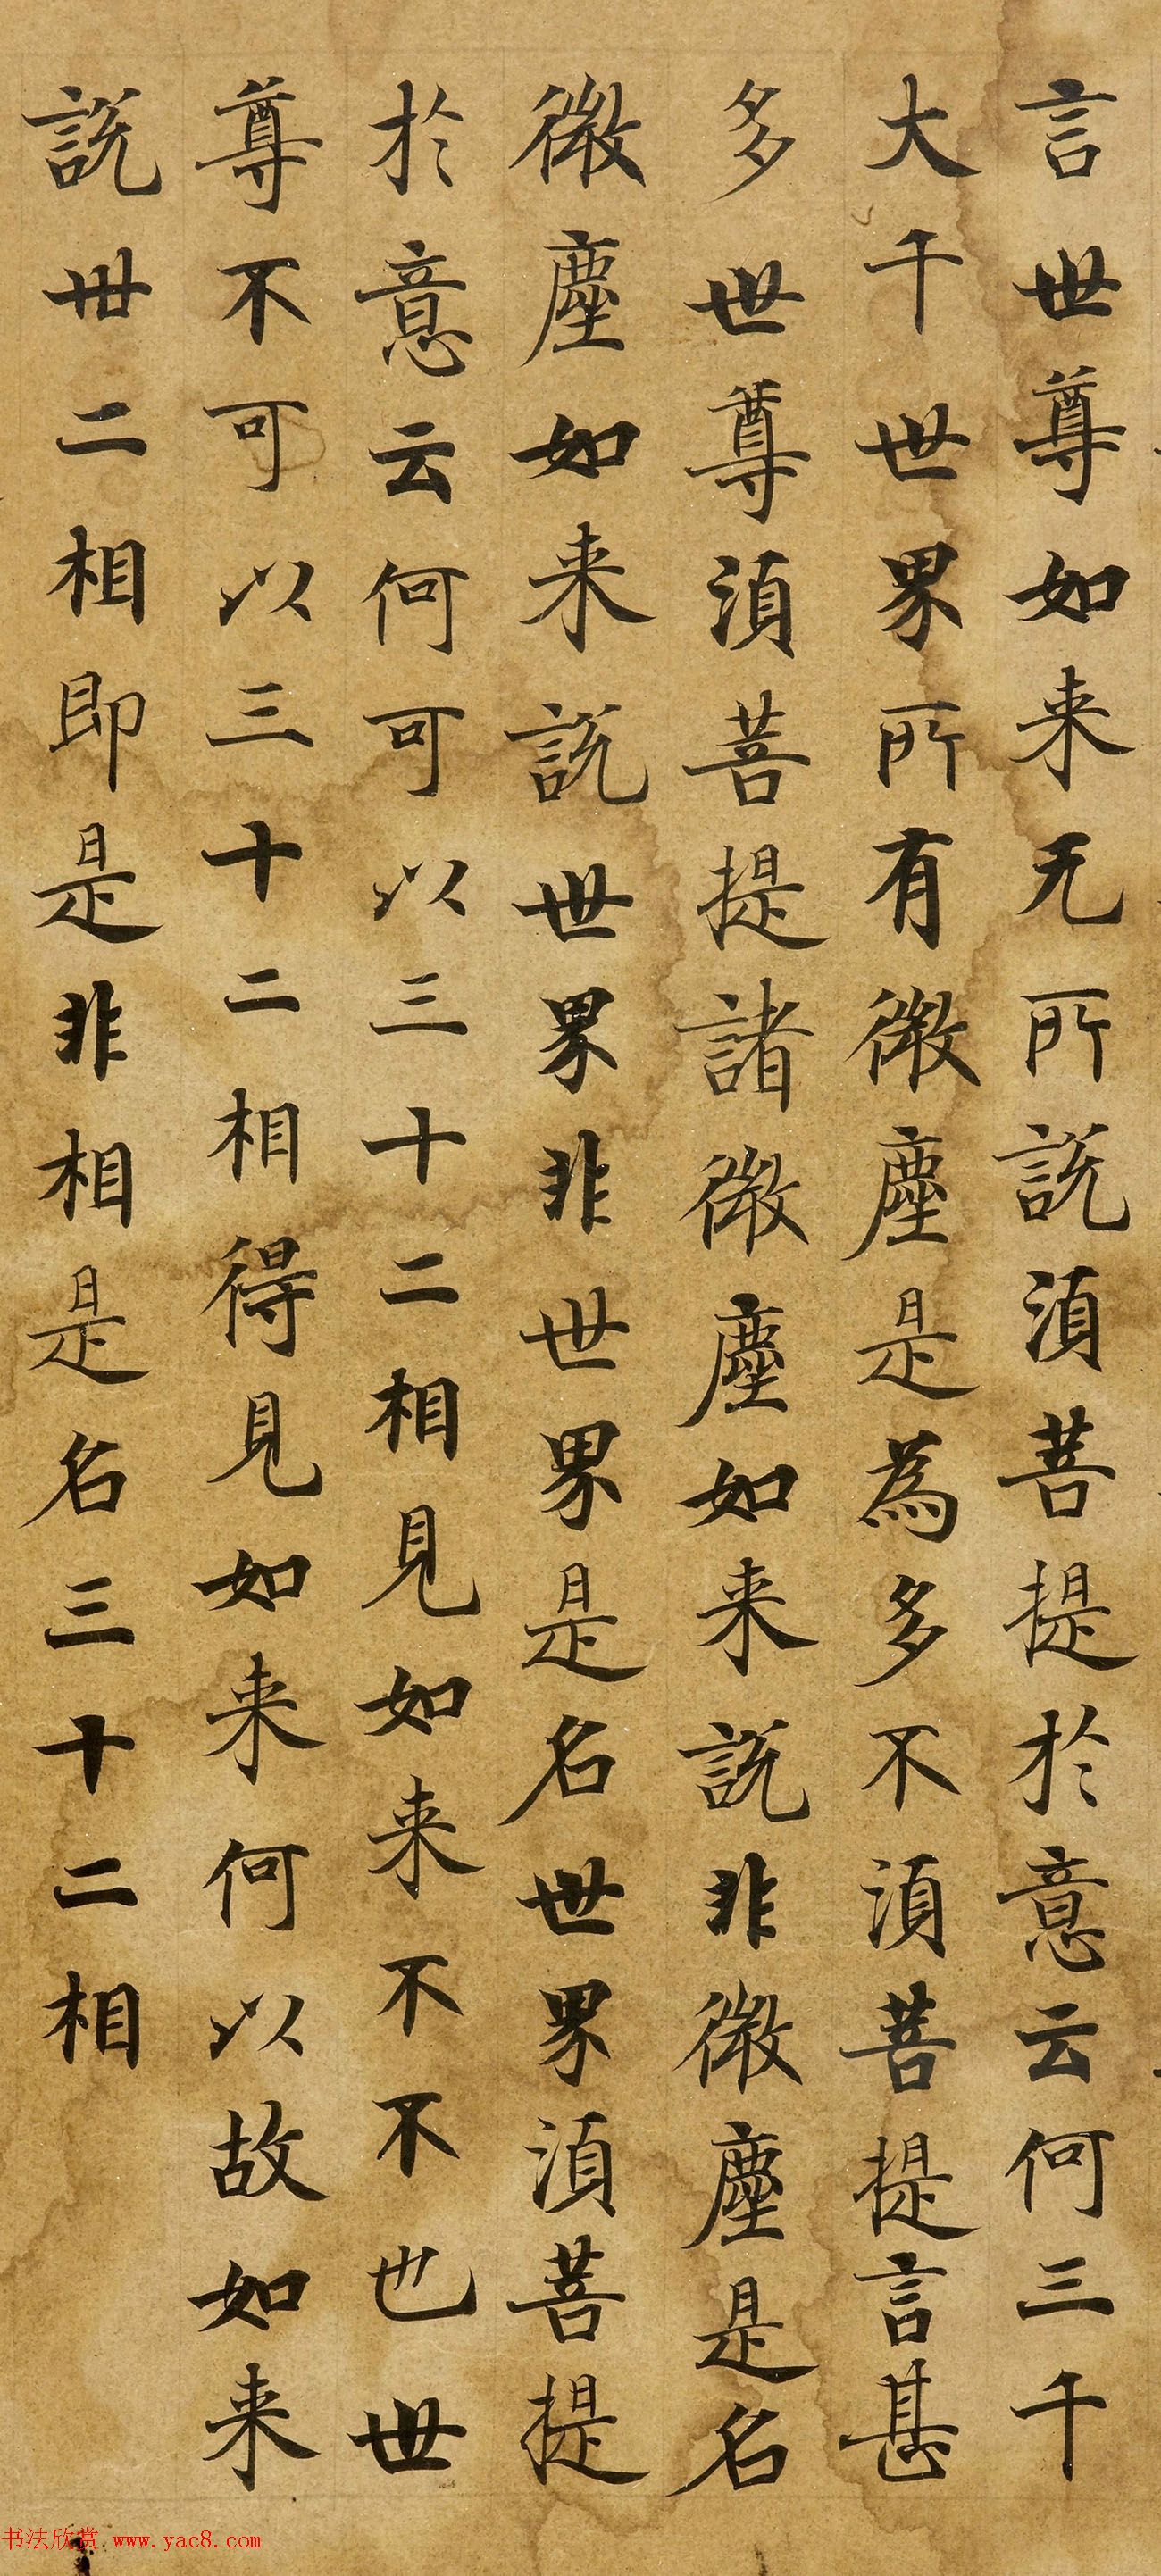 言世尊如来无所說湏菩提於意云何三千
大千世界所有微塵是為多不湏菩提言甚
多世尊湏菩提諸微塵如来說非微塵是名
微塵如来說世界非世界是名世界湏菩提
於意云何可以三十二相見如来不不也世
尊不可以三十二相得見如来何以故如来
說卅二相即是非相是名三十二相
书法欣赏 www.yac8.com